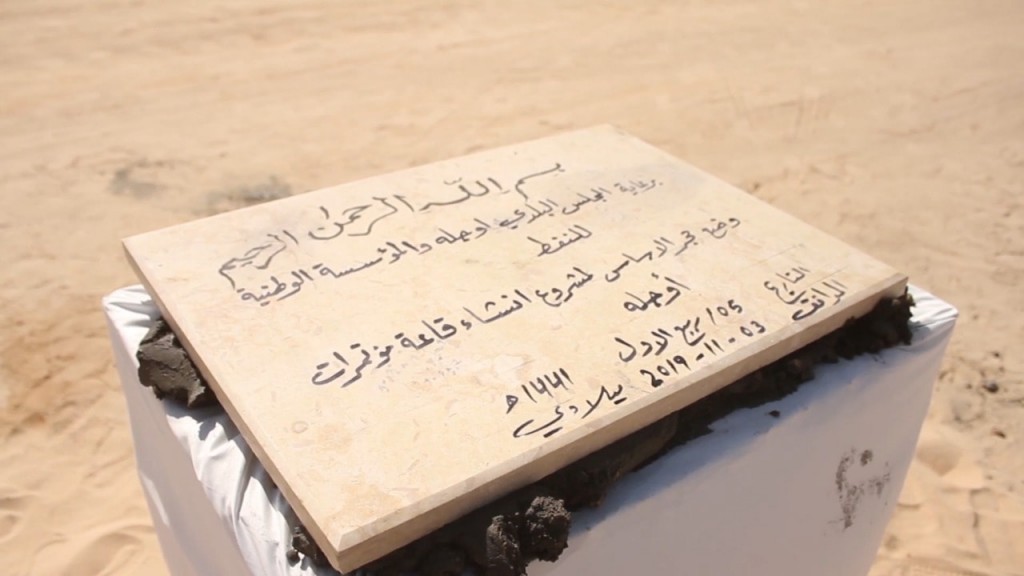 بسم الله الرحمن الرحيم
برعاية المجلس البلدي اوجله والمؤسسة الوطنية
للنفط
وضع حجر الاساس لمشروع انشاء قاعة مؤتمرات
أوجله
التاريخ 05/ ربيع الاول ١٤٤١ه
الموافق 03-11-2019 ميلادي